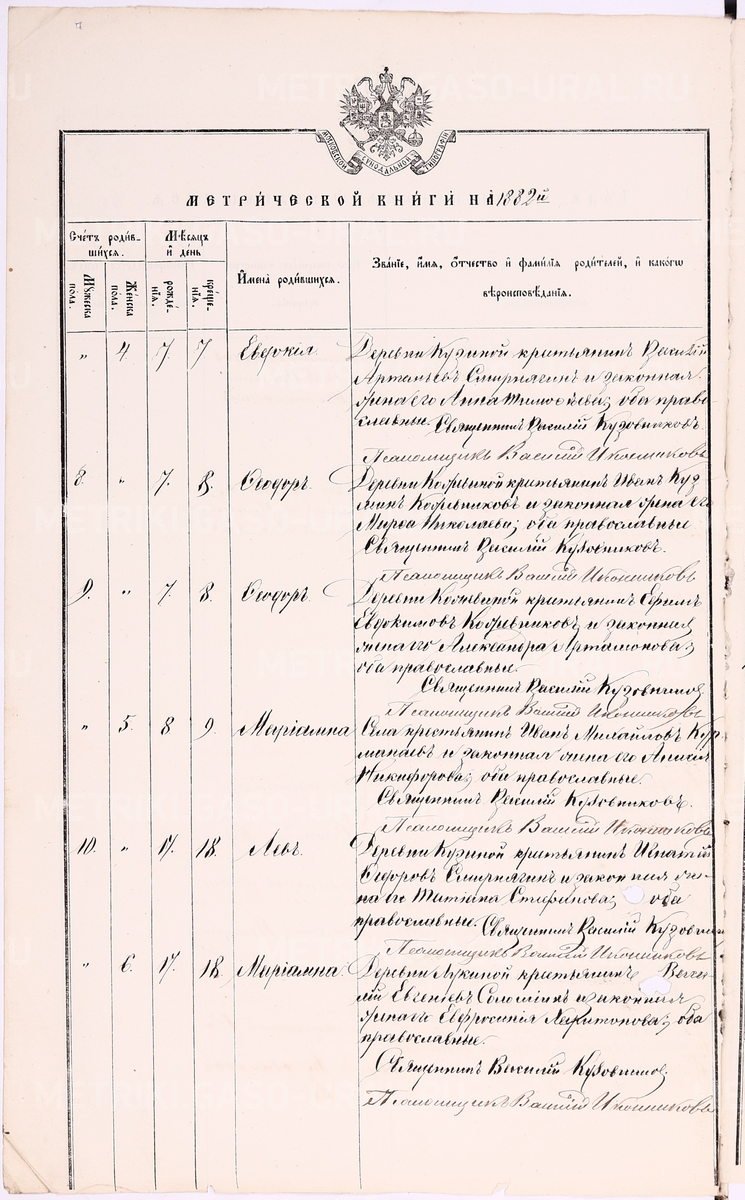 7
МОСКОВСКОЙ СѴНОДАЛЬНОЙ ТИПОГРАФІИ
МЕТРИ́ЧЕСКОЙ КНИ́ГИ НА̀ 1882й
Сче́тъ роди́в-
шихся.
Мѣсяцъ
и҆ день
Мꙋ́жеска
по́ла.
Же́нска
по́ла.
рожде́-
нїѧ.
креще́-
нїѧ.
И҆мена̀ роди́вшихся.
Зва́нїе, и҆́мѧ, ѻ҆́тчество и҆ фами́лїѧ роди́телей, и҆ како́гѡ
вѣроисповѣ́данїѧ.
„ 4. 7. 7 Евдокія. Деревни Кузиной крестьянинъ Василій
Артемьевъ Смирнягинъ и законная
жена его Анна Тимоѳеева; оба право-
славные. Священникъ Василій Кузовниковъ.
Псаломщикъ Василій Иконниковъ
8. „ 7. 8. Ѳеодоръ. Деревни крестьянинъ Иванъ Куз
минъ Кожевниковъ и законная жена его
Марѳа Николаева; оба православные
Священникъ Василій Кузовниковъ.
Псаломщикъ Василій Иконниковъ
9. „ 7. 8. Ѳеодоръ. Деревни крестьянинъ Ефимъ
Евдокимовъ Кожевниковъ и законная
жена его Александра Артамонова;
оба православные.
Священникъ Василій Кузовниковъ
Псаломщикъ Василій Иконниковъ
„ 5. 8 9. Маріамна Села крестьянинъ Иванъ Михайловъ
и законная жена его Анисія
Никифорова; оба православные.
Священникъ Василій Кузовниковъ.
Псаломщикъ Василій Иконниковъ
10. „ 17. 18. Левъ. Деревни Кузиной крестьянинъ Игнатій
Ѳедоровъ Смирнягинъ и законная же-
на его Татіана Стефанова; оба
православные. Священникъ Василій Кузовниковъ
Псаломщикъ Василій Иконниковъ
„ 6. 17. 18. Маріамна. Деревни Лукиной крестьянинъ
Евгеніевъ Соломеинъ и законная
жена его Евфросинія Харитонова; оба
православные.
Священникъ Василій Кузовниковъ
Псаломщикъ Василій Иконниковъ